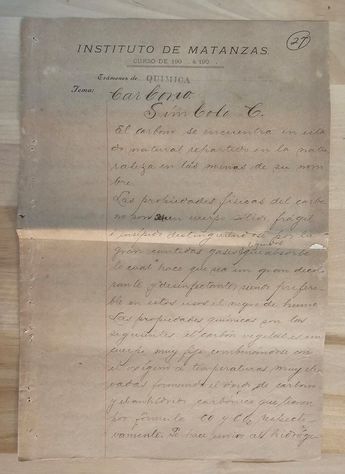 27
INSTITUTO DE MATANZAS.
CURSO DE 190 . Á 190 .
Exámenes de QUIMICA
Tema: Carbono.
Símbolo C.
El carbón se encuentra en esta
do natural repartido en la natu
raleza en las minas de su nom
bre.
Las propiedades físicas del carbo
no son: un cuerpo sólido, frágil
gran cantidad gases que absorbe
lo cual hace que sea un gran decolo
rante y desinfectante, siendo preferi
ble en estos usos el negro de humo
Las propiedades químicas son las
siguientes: el carbón vegetal es un
cuerpo muy fijo combinandose con
el oxigeno a temperaturas muy ele
vadas formando el óxido de carbono
y el anhidrido carbónico que tienen
por fórmula CO y CO2 respecti-
vamente. Se hace junto al hidróge